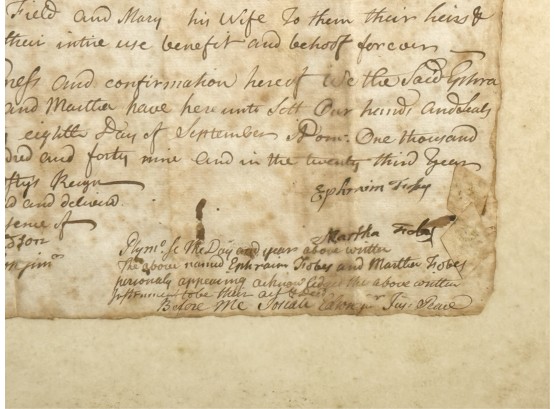 Field and Mary his Wife To them their heirs &
their intire use benefit and behoof forever
ness and confirmation hereof We the Said Ephra
and Martha have here unto Sett Our hands and Seals
eighth Day of September A Dom: One thousand
dred and forty nine and in the twenty third Year
stys Reign
Ephraim Fobes
d and deliverd
sence of
Martha Fobes
Plymo Sc The Day and year above writen
The above named Ephraim Fobes and Martha Fobes
personaly appearing acknowledged the above writen
Instrument to be their act & Deed
Before Me Josiah Edson Jus: Peace